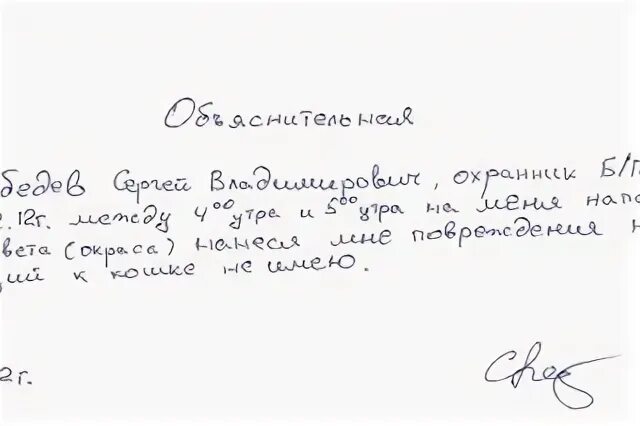 Объяснительная
бедев Сергей Владимирович, охранник Б/П
2.12г. между 4⁰⁰ утра и 5⁰⁰ утра на меня напа
вета (окраса) нанеся мне повреждения н
ций к кошке не имею.
2г.